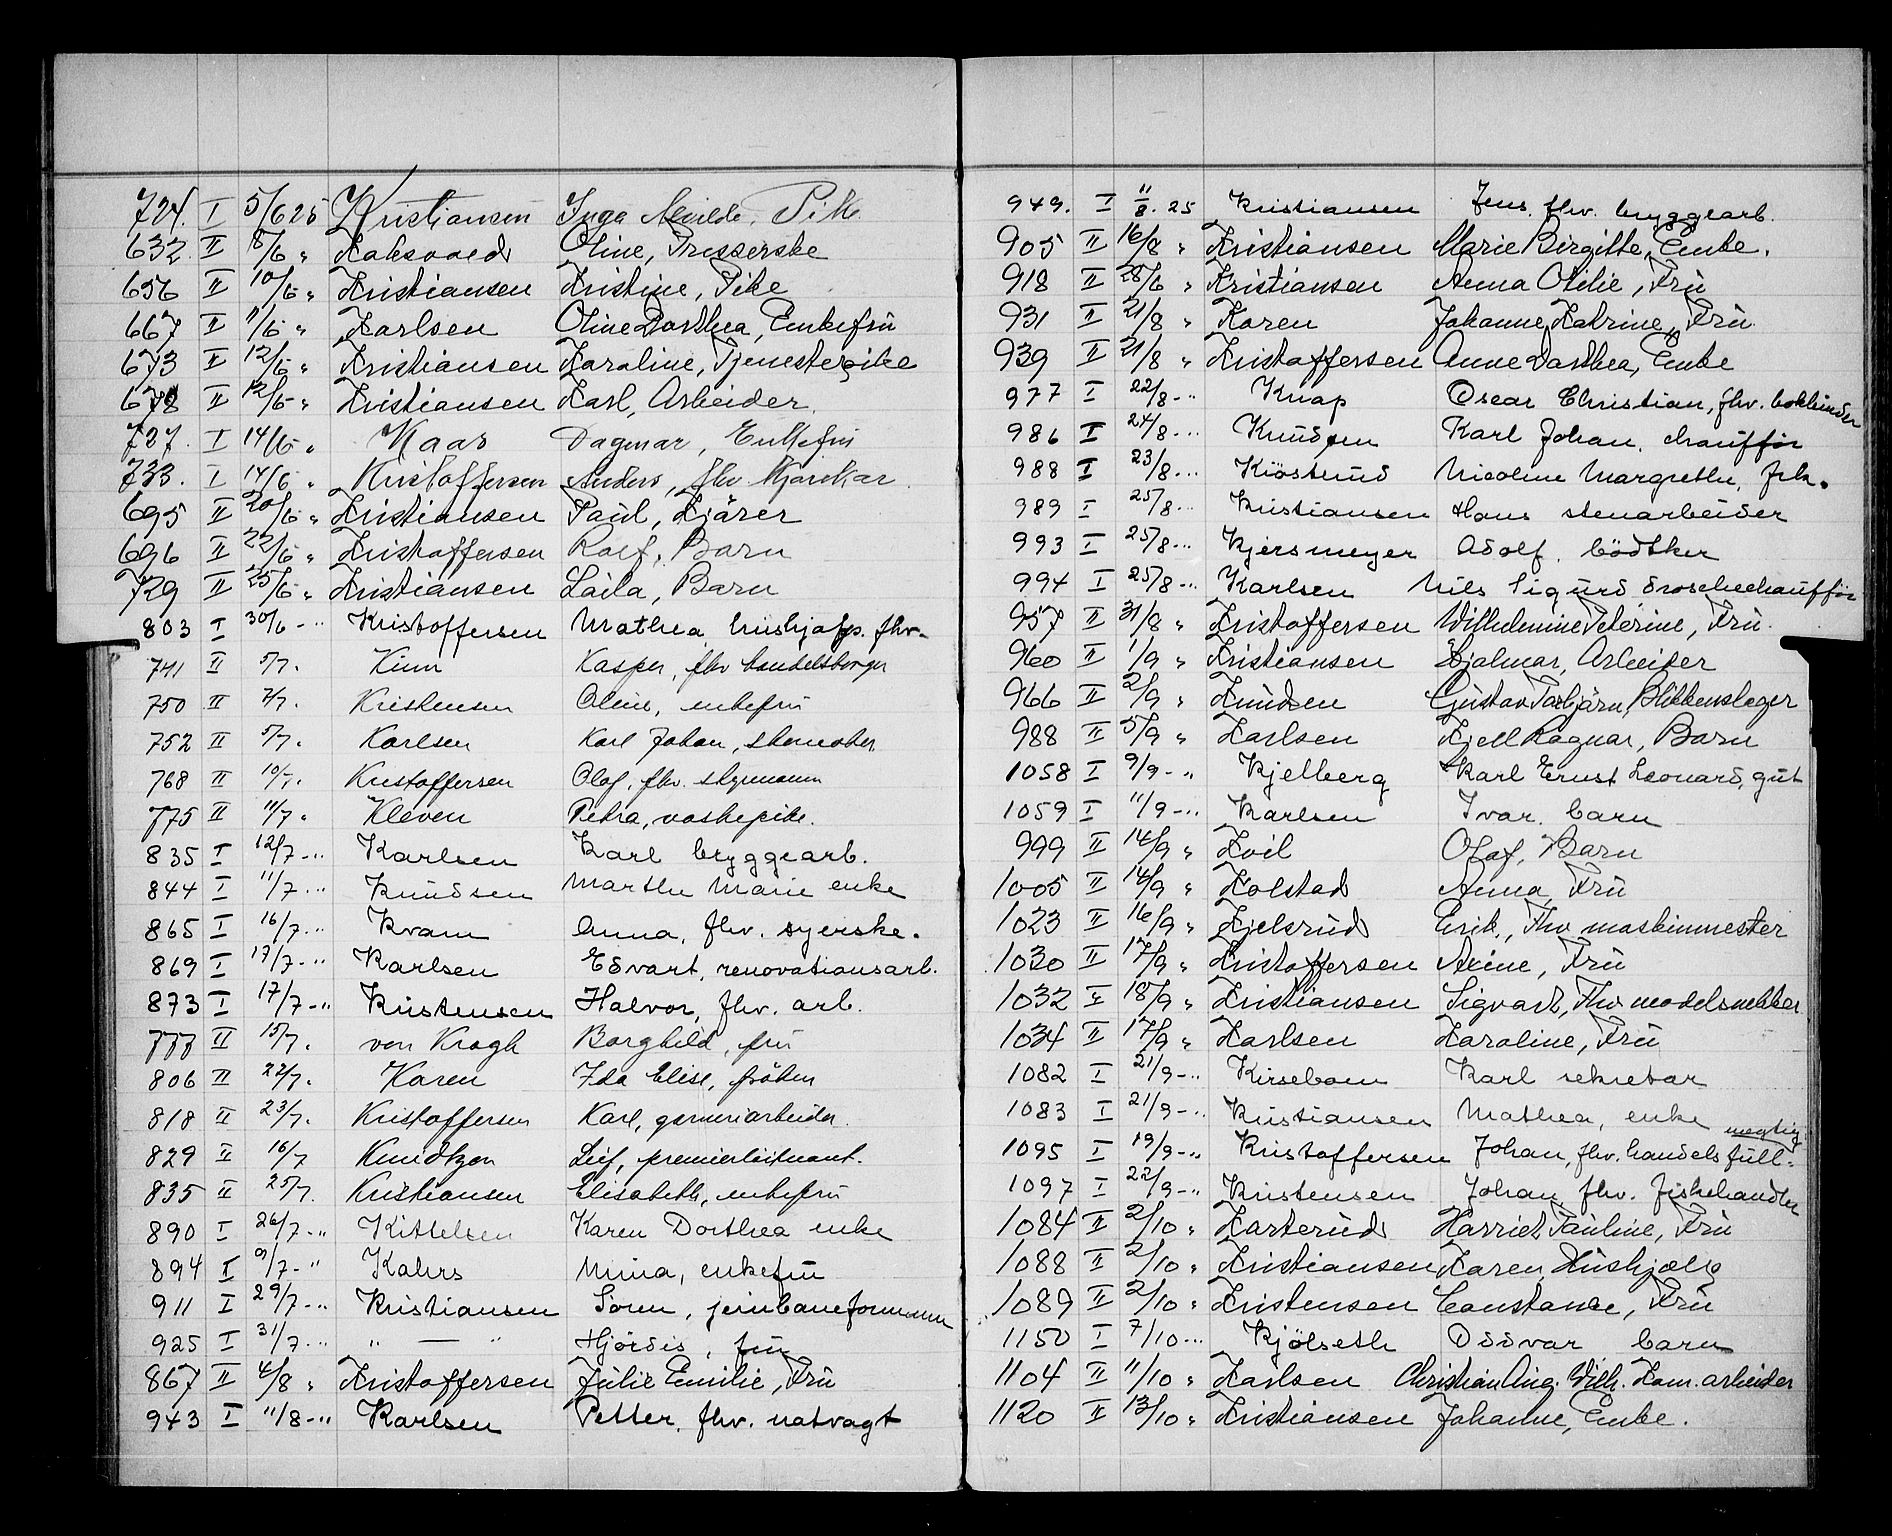 724. I 5/6 25 Kristiansen Inga Alvilde, Pike
632. II 8/6 " Kaksvold Oline, Presserske
656 II 10/6 " Kristiansen Kristine, Pike
667 II 11/6 " Karlsen Oline Dorthea, Enkefrü
673 II 12/6 " Kristiansen Karoline, Tjenestepike
678 II 12/6 " Kristiansen Karl, Arbeider.
727. I 14/6 " Kaas Dagmar, Enkefrü
733. I 14/6 " Kristoffersen Anders, fhv.
695 II 20/6 " Kristiansen Paul, Kjörer
696 II 22/6 " Kristoffersen Rolf, Barn
729 II 25/6 " Kristiansen Laila, Barn
803 I 30/6 - " Kristoffersen Mathea hushjelp. fhv.
741 II 5/7. Kinn Kasper, fhv handelsborger
750 II 7/7. Kristensen Oline, enkefrü
752 II 5/7. Karlsen Karl Johan, skomaker
768 II 10/7. Kristoffersen Olaf, fhv. styrmann
775 II 11/7. Kleven Petra, vaskepike.
835 I 12/7 - " Karlsen Karl bryggearb.
844 I 11/7 - " Knüdsen Marthe Marie enke
865 I 16/7 - " Kvam Anna, fhv. syerske.
869 I 17/7 - " Karlsen Edvart, renovationsarb.
873 I 17/7 - " Kristensen Halvor, fhv. arb.
777 II 15/7. von Krogh Borghild, frü
806 II 22/7. Karen Ida Elise, fröken
818 II 23/7. Kristoffersen Karl, garveriarbeider.
829 II 16/7 Knudtzon Leif, premierløitnant.
835 II 25/7. Kristiansen Elisabeth, enkefrü
890 I 26/7 - " Kittelsen Karen Dorthea enke
894 I 9/7 - " Kahrs Mina, enkefrü
911 I 29/7 - " Kristiansen Soren, jernbaneformann
925 I 31/7 - " " — " Hjördis, frü
867 II 4/8 " Kristoffersen Julie Emilie, Frü
943 I 11/8 - " Karlsen Petter, fhv. natvagt
949. I 11/8. 25 Kristiansen Jens, fhv. bryggearb.
905 II 16/8 " Kristiansen Marie Birgitte, Enke.
918 II 28/6 " Kristiansen Anna Otilie, Frü
931 II 21/8 " Karen Johanne Katrine, Frü
939 II 21/8 " Kristoffersen Anne Dorthea, Enke
977 I 22/8 - " Knap Oscar Christian, fhv. bokbinder
986 I 24/8 - " Knüdsen Karl Johan, chaufför
988 I 23/8 - " Kiösterud Nicoline Margrethe, frk.
989 I 25/8 - " Kristiansen Hans stenarbeider
993 I 25/8 - " Kjersmeyer Adolf. bödtker
994 I 25/8 - " Karlsen Nils Sigurd droschechaufför
957 II 31/8 " Kristoffersen Wilhelmine Peterine, Frü.
960 II 1/9 " Kristiansen Hjalmar, Arbeider
966 II 2/9 " Knüdsen Güstav Torbjörn, Blikkenslager
988 II 5/9 " Karlsen Kjell Ragnar, Barn
1058 I 9/9 - " Kjelberg Karl Ernst Leonard, gut
1059 I 11/9 - " Karlsen Ivar. barn
999 II 14/9 " Kvil Olaf, Barn
1005 II 14/9 " Kolstad Anna, Frü
1023 II 16/9 " Kjelsrüd Erik, Fhv maskinmester
1030 II 17/9 " Kristoffersen Axine, Frü
1032 II 18/9 " Kristiansen Sigvart, Fhv modelsnekker
1034 II 17/9 " Karlsen Karoline, Frü
1082 I 21/9 - " Kirsebom Karl sekretær
1083 I 21/9 - " Kristiansen Mathea, enke
1095 I 19/9 - " Kristoffersen Johan, fhv. handelsfull- megtig
1097 I 22/9 - " Kristensen Johan fhv. fiskehandler
1084 II 2/10 " Karterüd Harriet Pauline, Frü
1088 II 2/10 " Kristiansen Karen, Hüshjælp
1089 II 2/10 " Kristensen Constance, Frü
1150 I 7/10 - " Kjölseth Oddvar barn
1104 II 11/10 " Karlsen Christian Aug. Wilh. Kom. arbeider
1120 II 13/10 " Kristiansen Johanne, Enke.